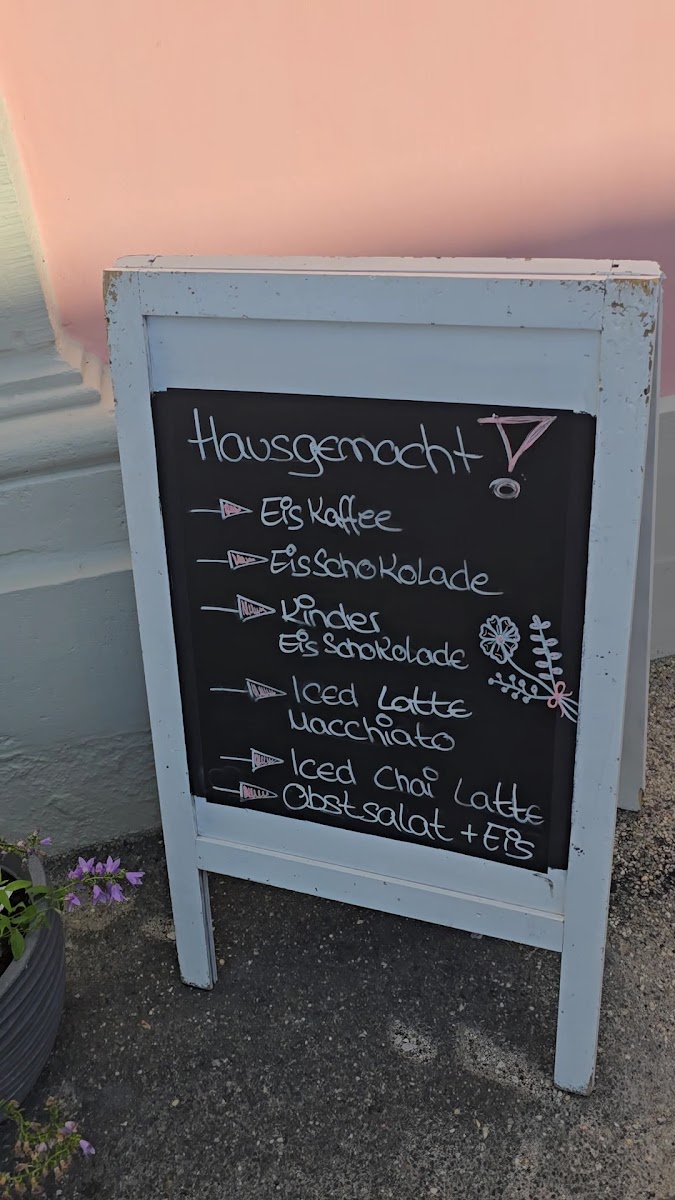 Hausgemacht!
Eis Kaffee
EisSchoKoLade
Kinder
EisSchoKolade
Iced Latte
Macchiato
Iced Chai Latte
Obstsalat + Eis